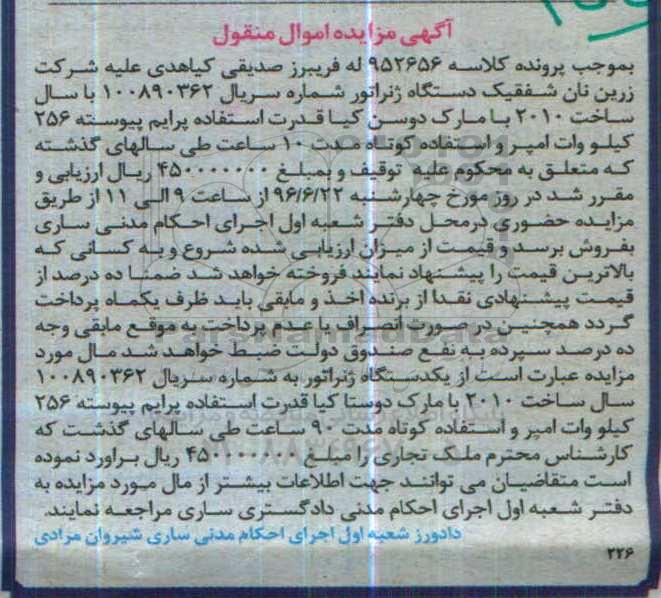 آگهی مزایده اموال منقول
بموجب پرونده کلاسه ۹۵۲۶۵۶ له فریبرز صدیقی کیاهدی علیه شرکت
زرین نان شفقیک دستگاه ژنراتور شماره سریال ۱۰۰۸۹۰۳۶۲ با سال
ساخت ۲۰۱۰ با مارک دوسن کیا قدرت استفاده پرایم پیوسته ۲۵۶
کیلو وات امپر و استفاده کوتاه مدت ۱۰ ساعت طی سالهای گذشته
که متعلق به محکوم علیه توقیف و بمبلغ ۴۵۰۰۰۰۰۰۰ ریال ارزیابی و
مقرر شد در روز مورخ چهارشنبه ۹۶/۶/۲۲ از ساعت ۹ الی ۱۱ از طریق
مزایده حضوری درمحل دفتر شعبه اول اجرای احکام مدنی ساری
بفروش برسد و قیمت از میزان ارزیابی شده شروع و به کسانی که
بالاترین قیمت را پیشنهاد نمایند فروخته خواهد شد ضمنا ده درصد از
قیمت پیشنهادی نقدا از برنده اخذ و مابقی باید ظرف یکماه پرداخت
گردد همچنین در صورت انصراف یا عدم پرداخت به موقع مابقی وجه
ده درصد سپرده به نفع صندوق دولت ضبط خواهد شد مال مورد
مزایده عبارت است از یکدستگاه ژنراتور به شماره سریال ۱۰۰۸۹۰۳۶۲
سال ساخت ۲۰۱۰ با مارک دوستا کیا قدرت استفاده پرایم پیوسته ۲۵۶
کیلو وات امپر و استفاده کوتاه مدت ۹۰ ساعت طی سالهای گذشت که
کارشناس محترم ملک تجاری را مبلغ ریال براورد نموده
است متقاضیان می توانند جهت اطلاعات بیشتر از مال مورد مزایده به
دفتر شعبه اول اجرای احکام مدنی دادگستری ساری مراجعه نمایند.
دادورز شعبه اول اجرای احکام مدنی ساری شیروان مرادی
۲۲۶